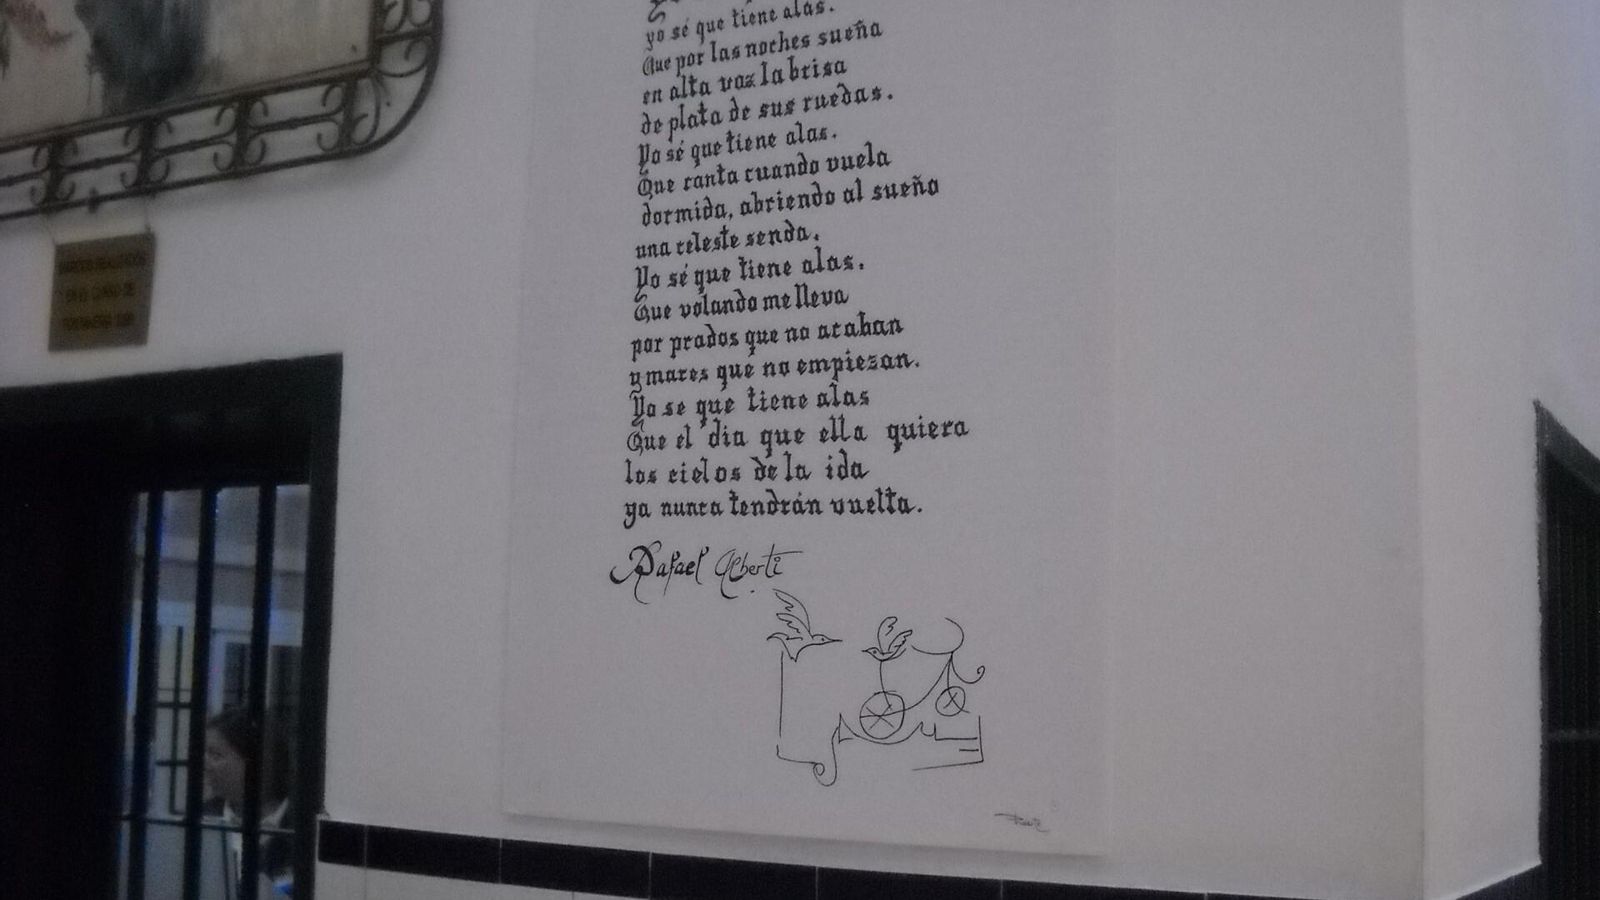 yo sé que tiene alas.
Que por las noches sueña
en alta voz la brisa
de plata de sus ruedas.
Yo sé que tiene alas.
Que canta cuando vuela
dormida, abriendo al sueño
una celeste senda.
Yo sé que tiene alas.
Que volando me lleva
por prados que no acaban
y mares que no empiezan.
Yo se que tiene alas
Que el dia que ella quiera
los cielos de la ida
ya nunca tendrán vuelta.
Rafael Alberti